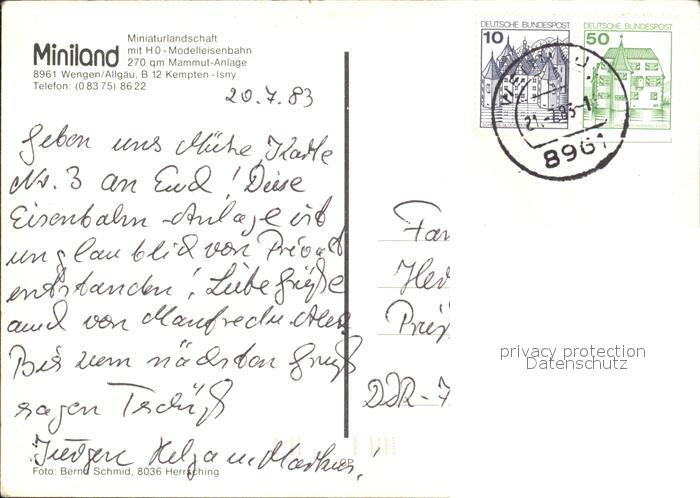 Miniland
Miniaturlandschaft
mit H0-Modelleisenbahn
270 qm Mammut-Anlage
8961 Wengen/Allgäu, B 12 Kempten-Isny
Telefon: (0 83 75) 86 22
20.7.83
Geben uns Mühe, Karte
Nr. 3 an Euch! Diese
Eisenbahn-Anlage ist
unglaublich von Privat
entstanden! Liebe Grüße
auch von Manfred u.
Bis zum nächsten Gruß
sagen Tschüß
Jürgen Helga u. Markus!
Foto: Bernd Schmid, 8036 Herrsching
10
DEUTSCHE BUNDESPOST
50
DEUTSCHE BUNDESPOST
8961
Fam
Her
DDR-7
privacy protection
Datenschutz